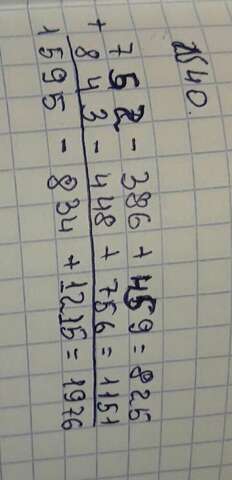 752 - 386 + 459 = 825
+
843 - 448 + 756 = 1151
1595 - 834 + 1215 = 1976